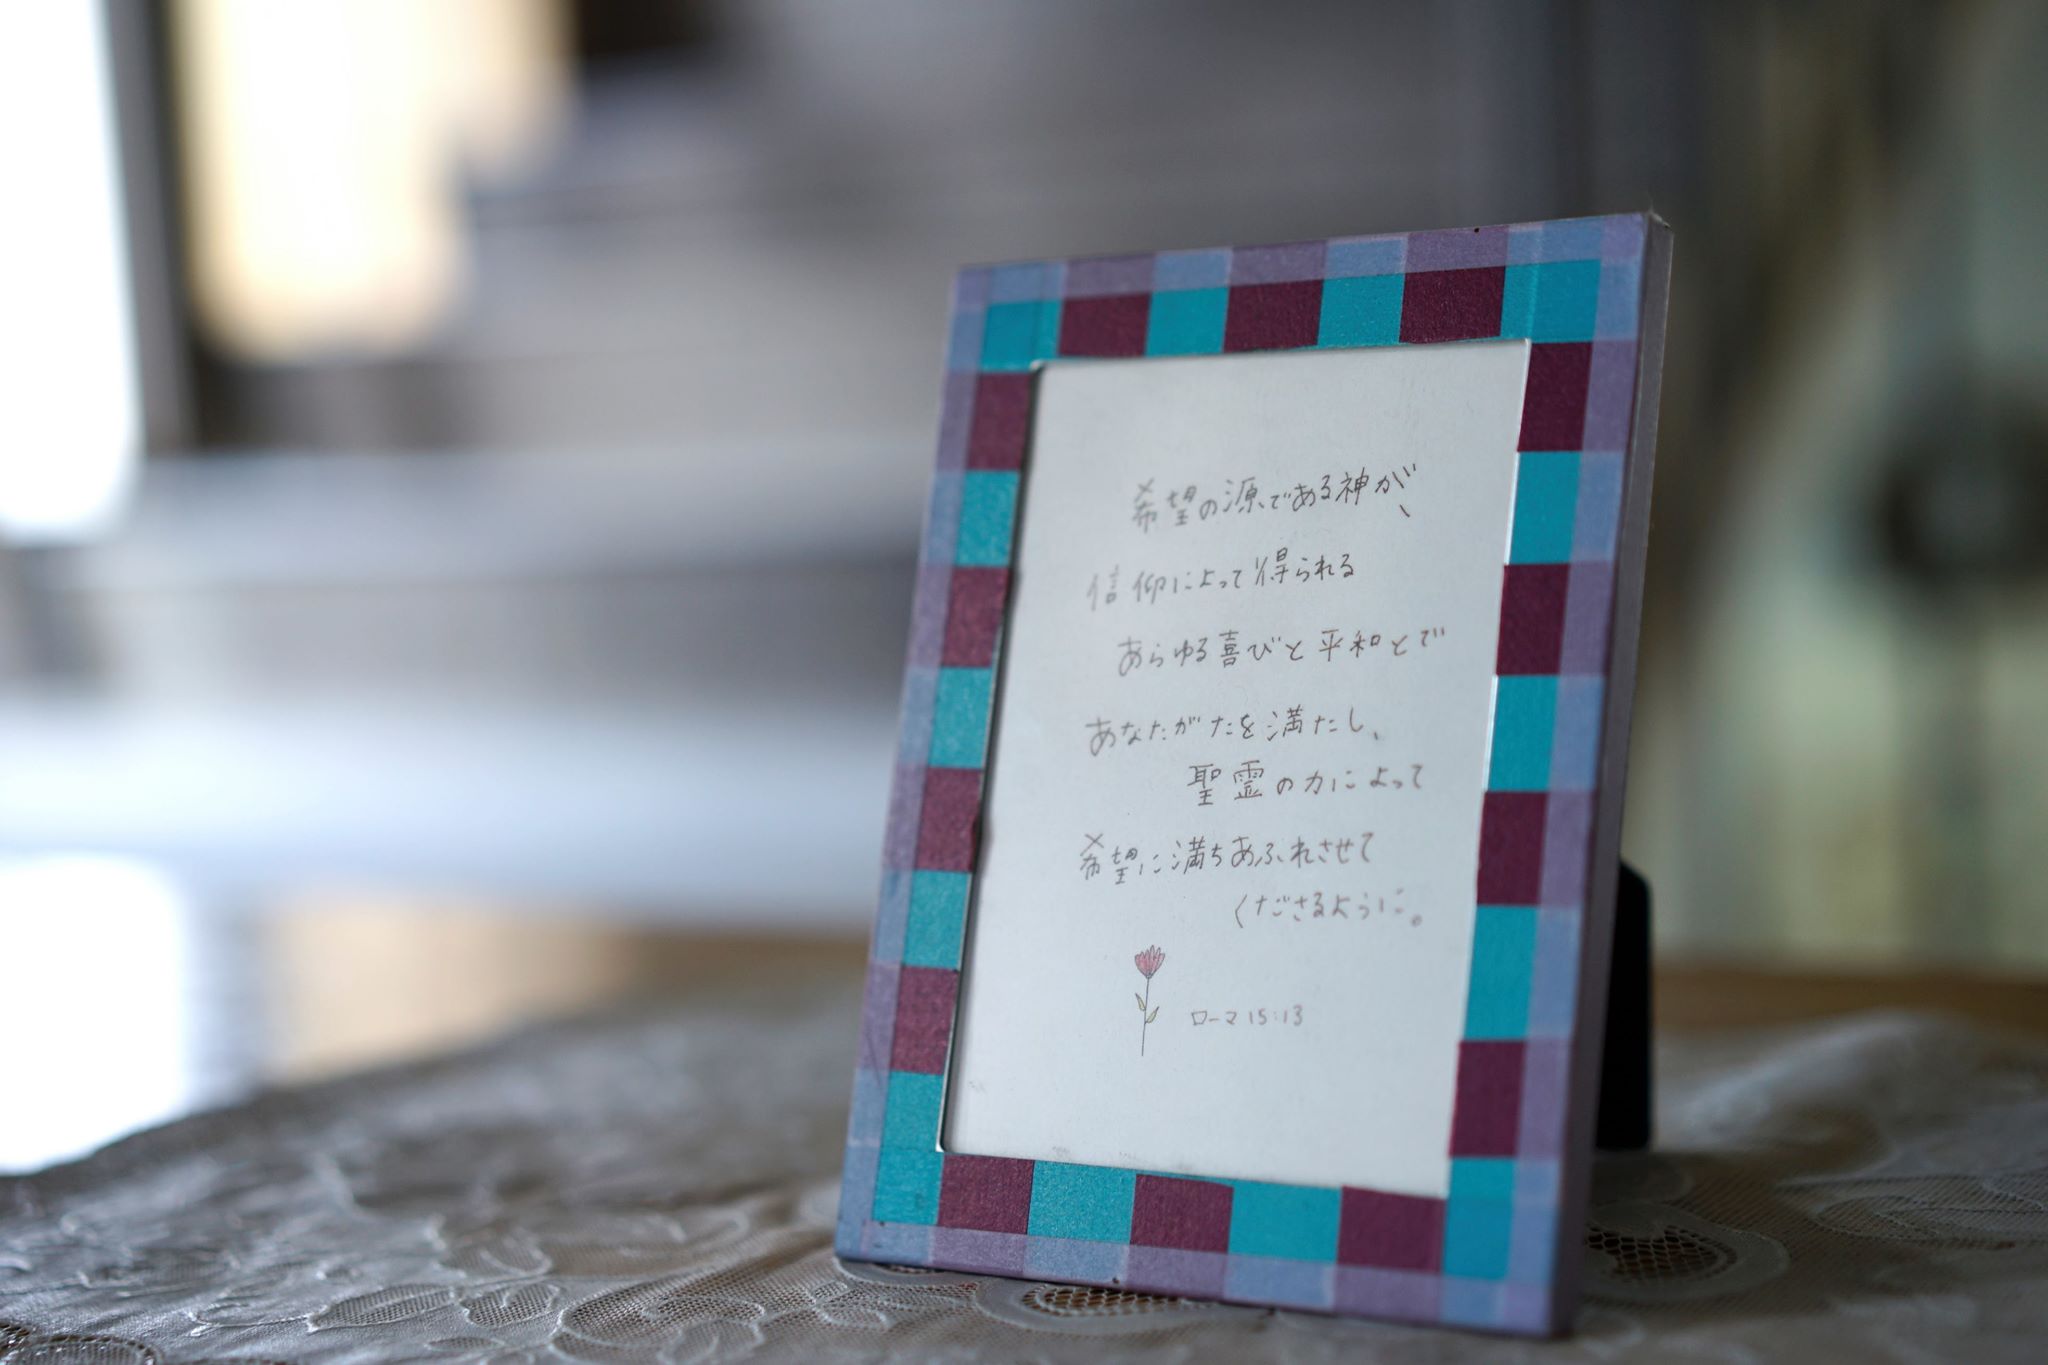 希望の源である神が、
信仰によって得られる
あらゆる喜びと平和とで
あなたがたを満たし、
聖霊の力によって
希望に満ちあふれさせて
くださるように。
ローマ15:13